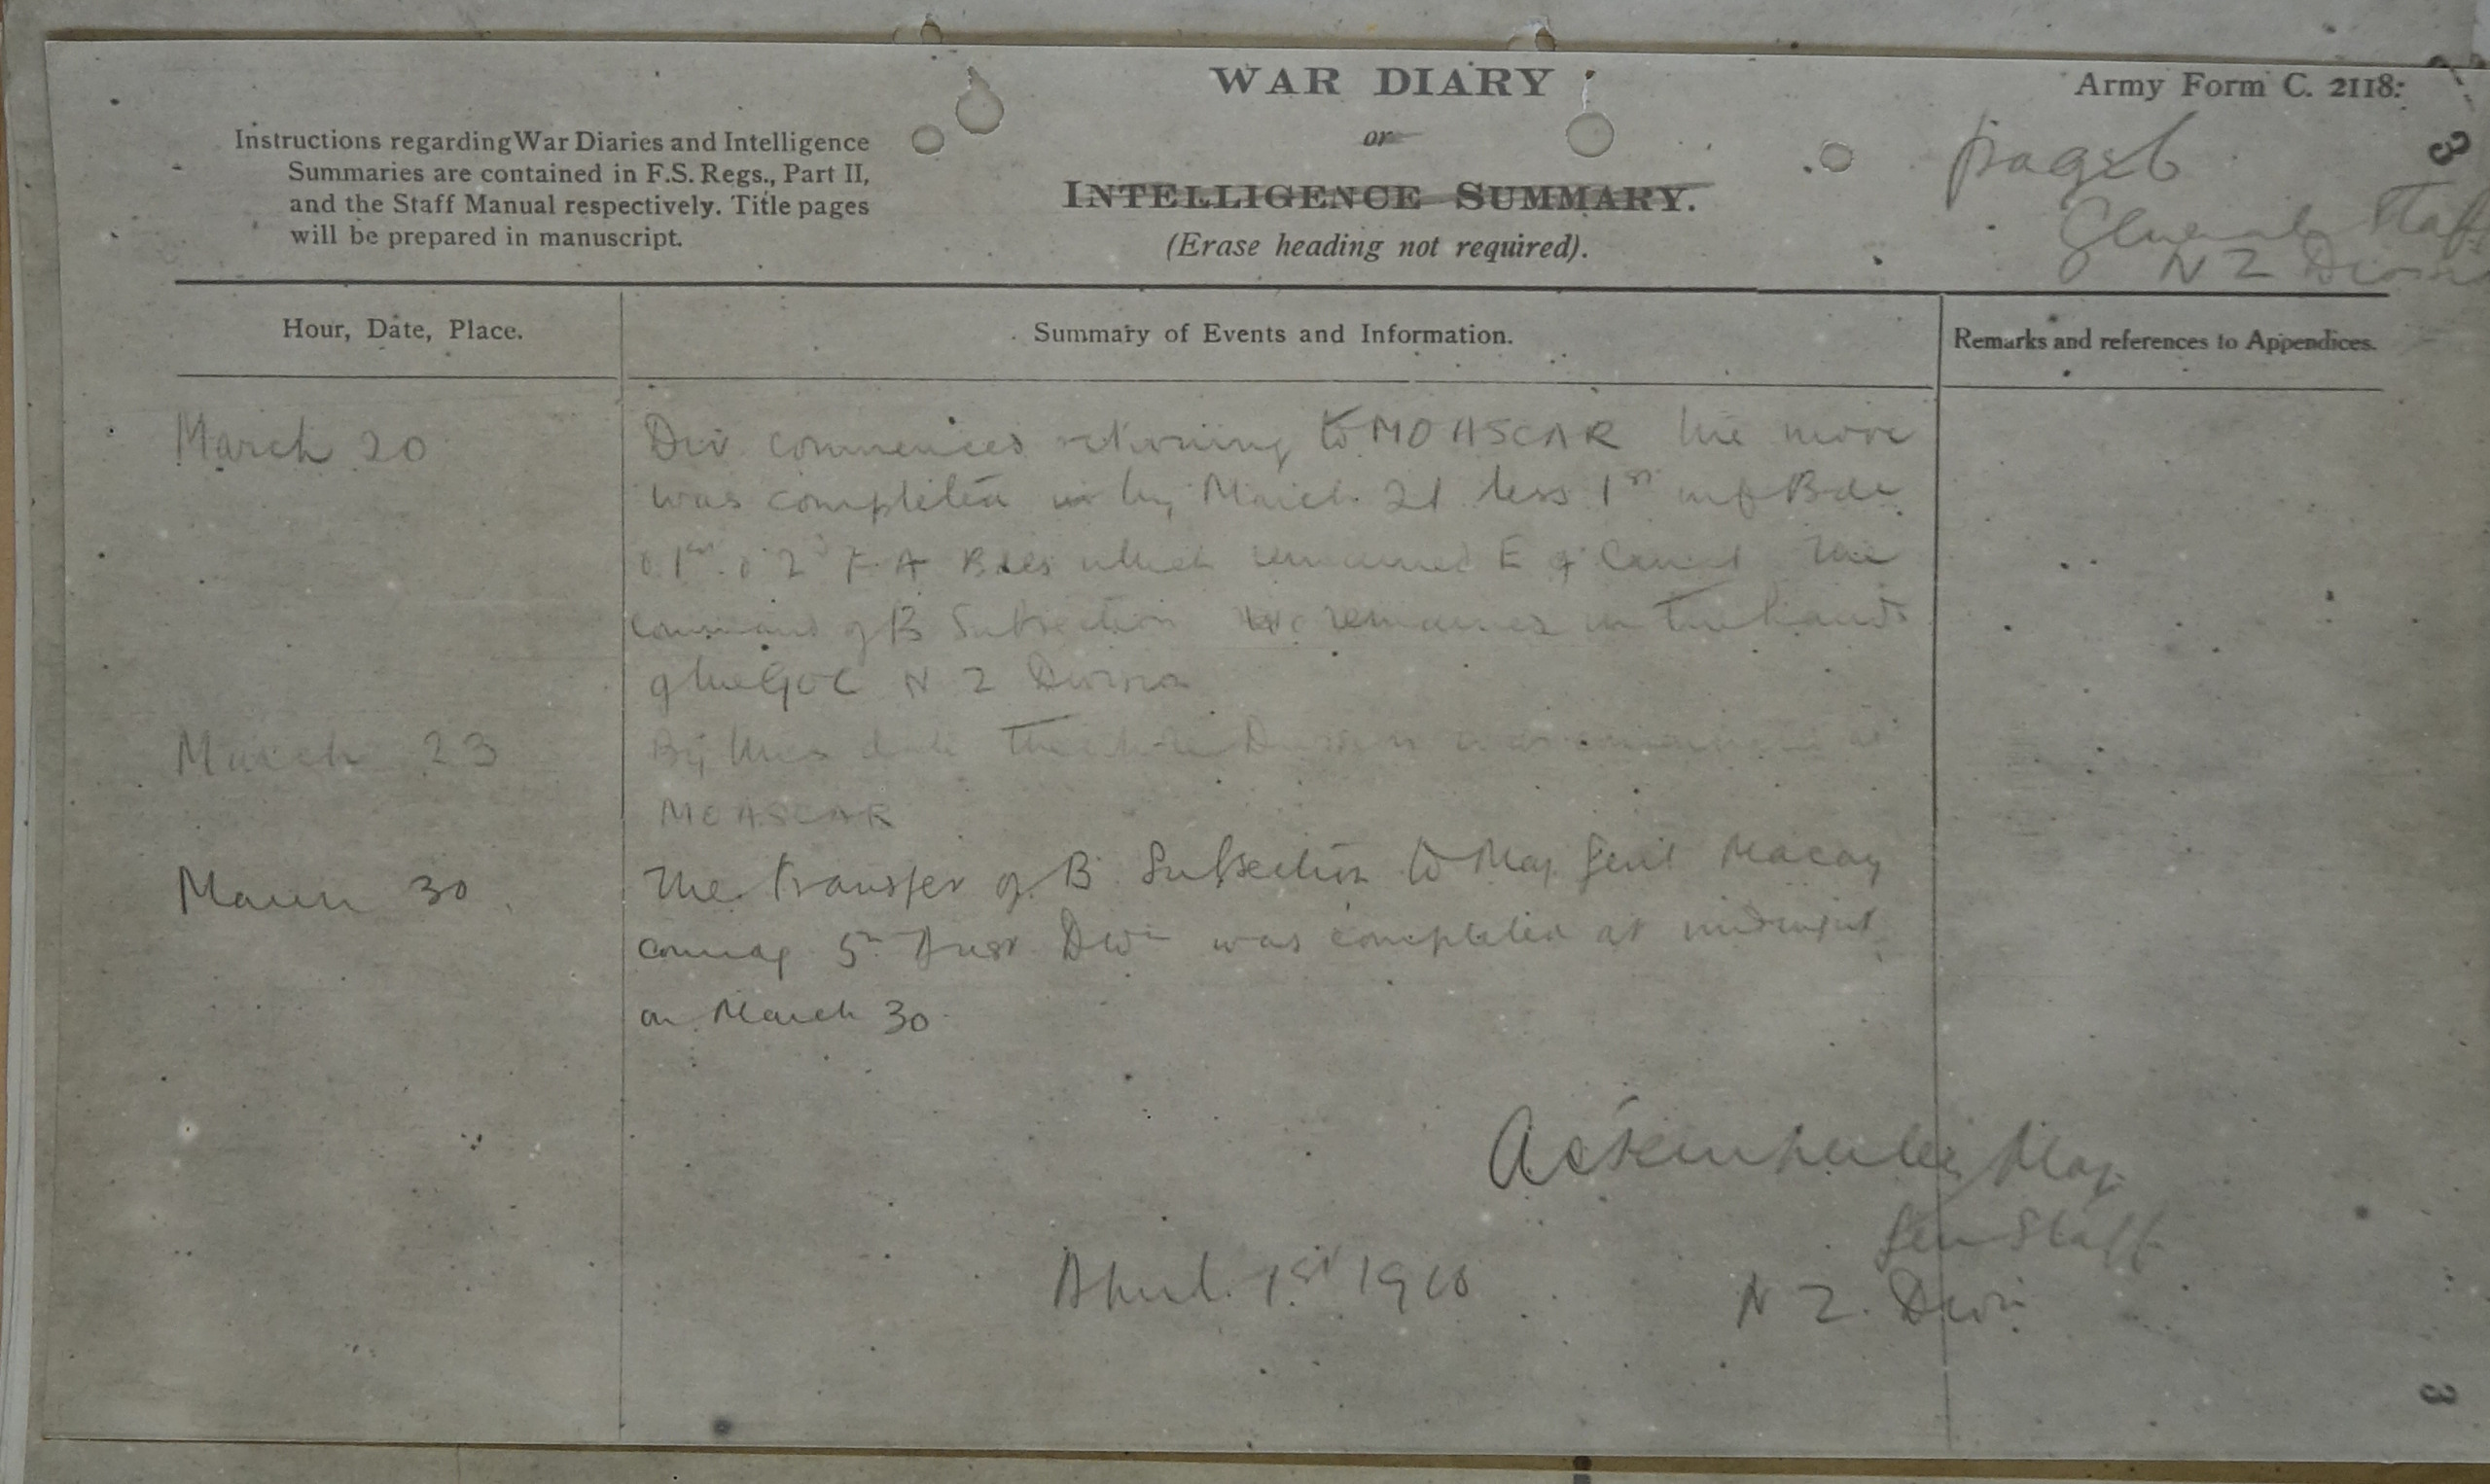 WAR DIARY
or
INTELLIGENCE SUMMARY.
(Erase heading not required).
Army Form C. 2118.
Instructions regarding War Diaries and Intelligence
Summaries are contained in F.S. Regs., Part II,
and the Staff Manual respectively. Title pages
will be prepared in manuscript.
page 6
General Staff
N Z Division
3
Hour, Date, Place.
Summary of Events and Information.
Remarks and references to Appendices.
March 20
Div commenced returning to MOASCAR the move
was completed by March 21 less 1st inf Bde
& 1st & 2d F A Bdes which remained E of Canal The
command of B Subsection remained in the hands
of the GOC N Z Division
March 23
By this date the whole Division was at
MOASCAR
March 30
The transfer of B Subsection to Maj Genl Macay
comdg 5th Aust Divn was completed at midnight
on March 30
Maj
Gen Staff
April 1st 1916
N Z Divn
3